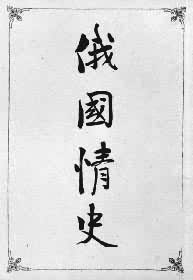 俄國情史